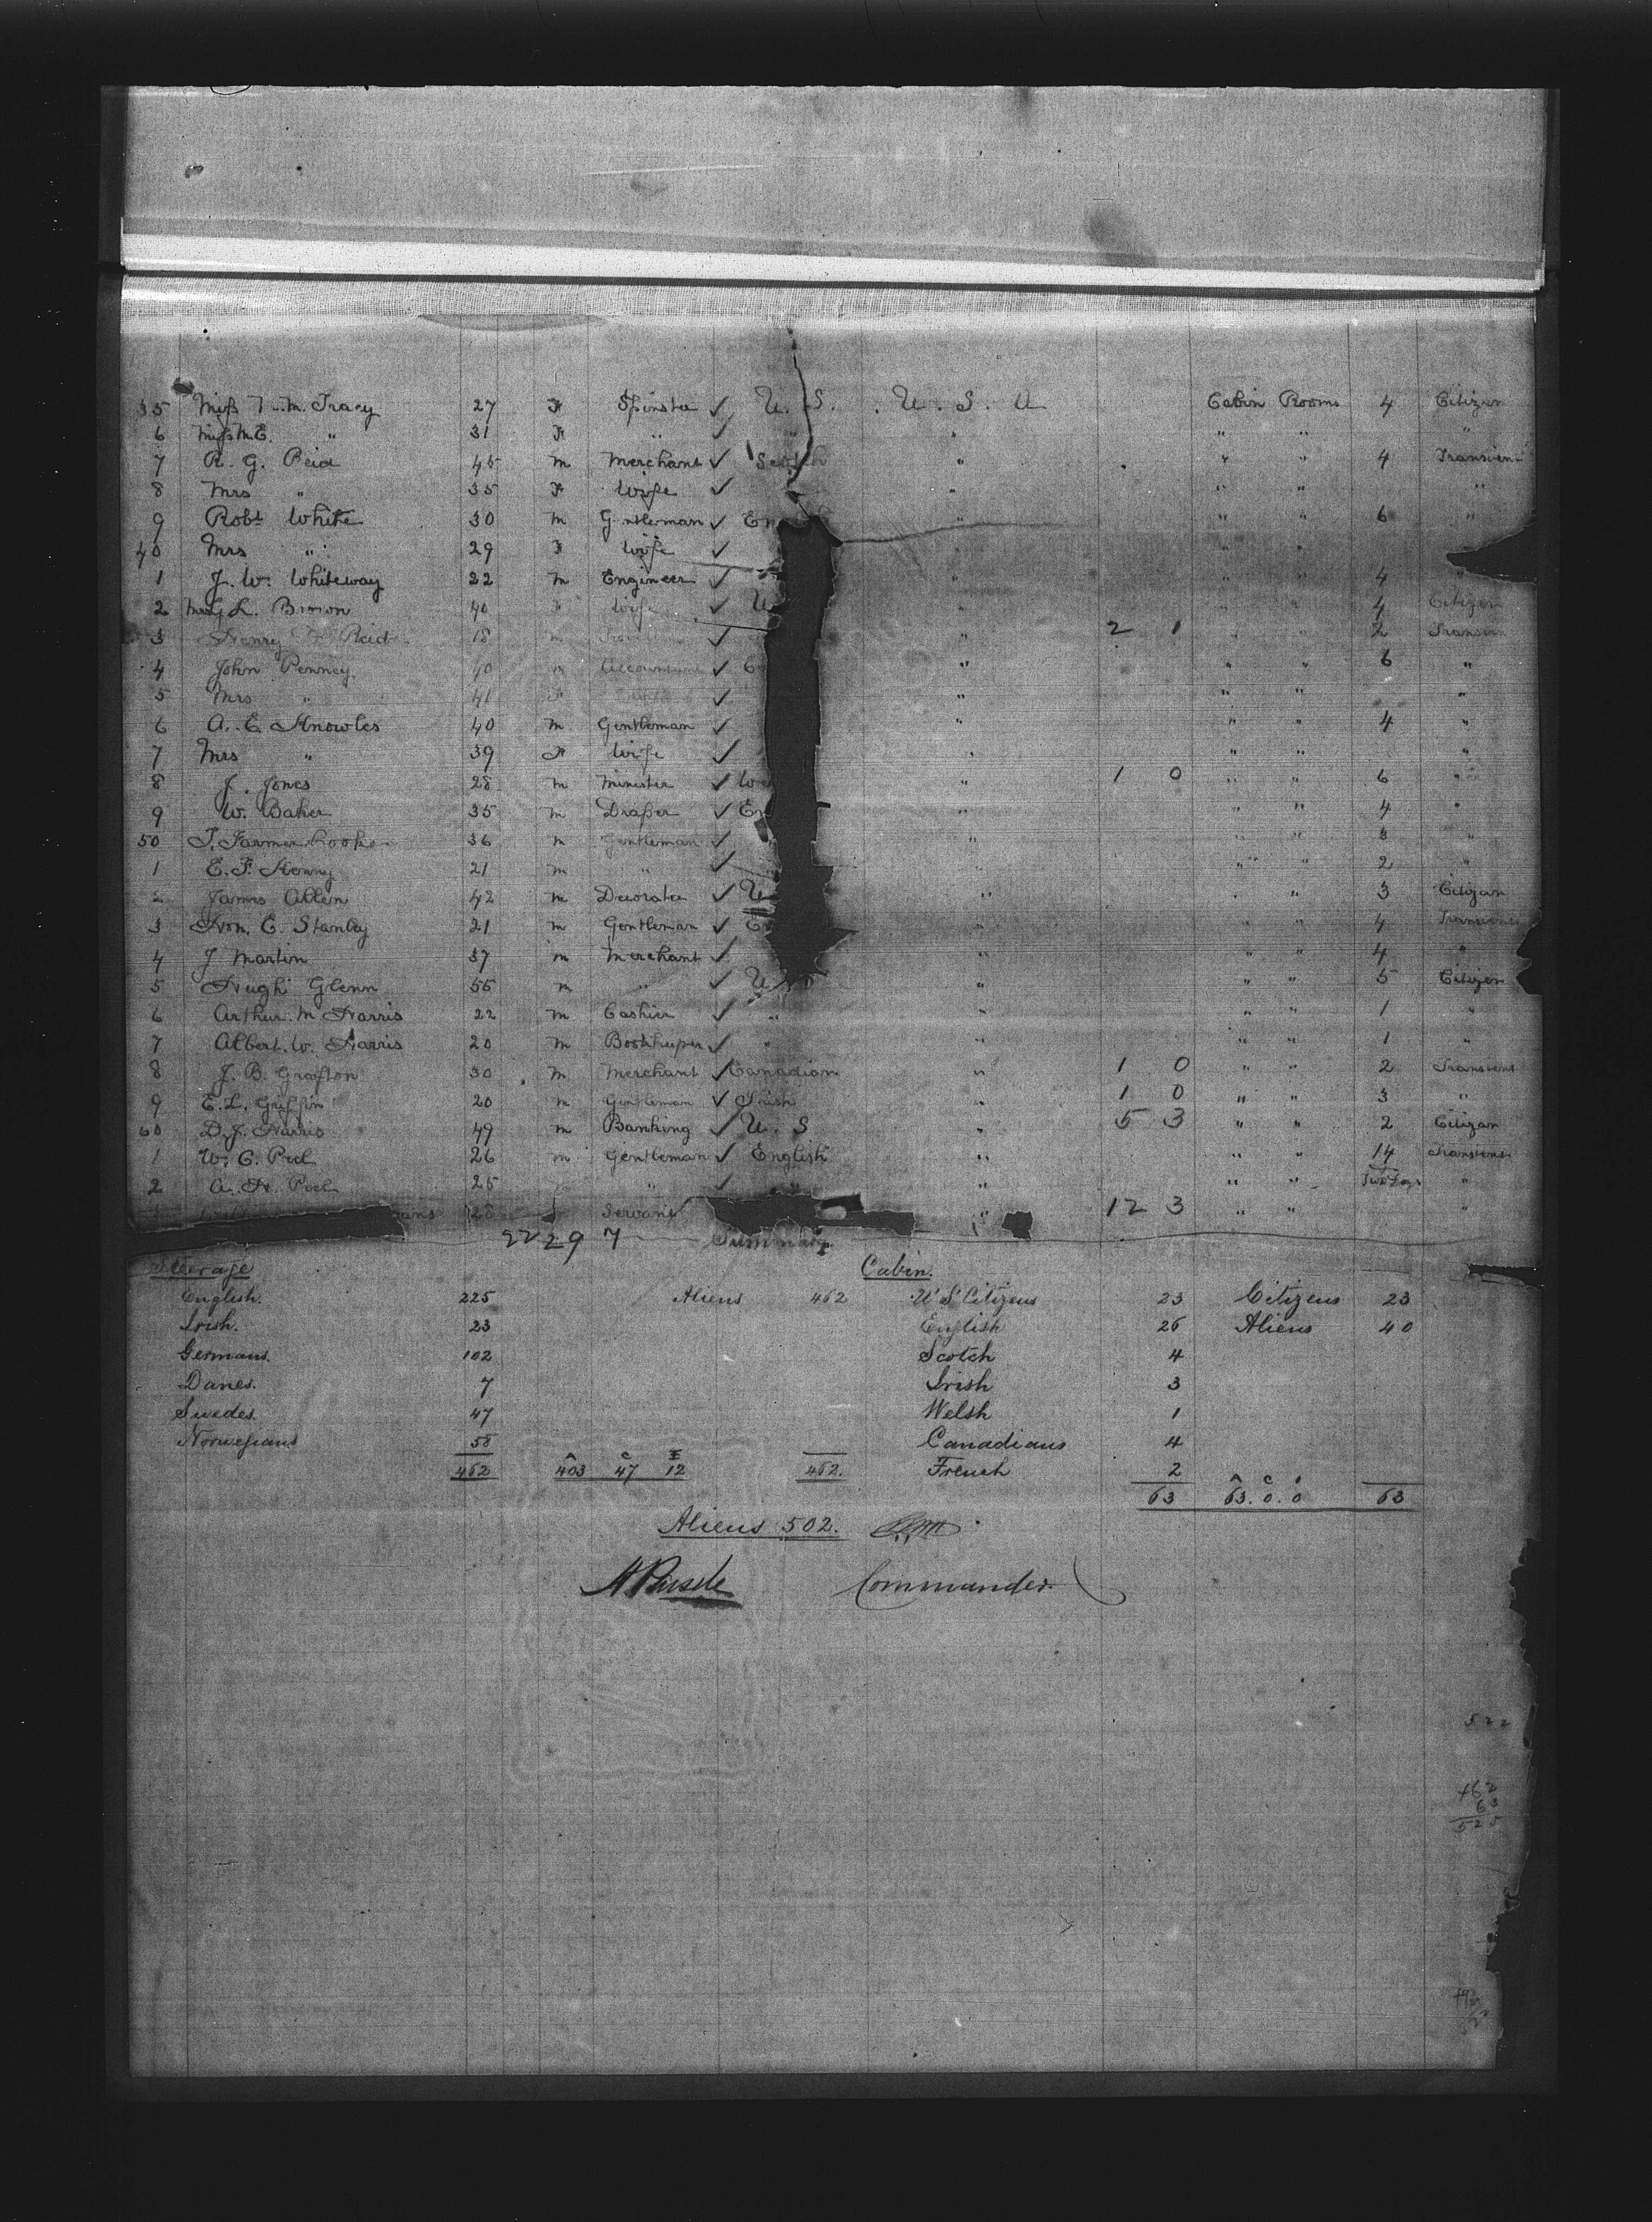 35 Miss M. Tracy 27 F Spinster ✓ U. S. U. S. A Cabin Rooms 4 Citizen
6 Miss M.E. " 31 F " ✓ " " " " "
7 R. G. Reid 45 m Merchant ✓ Scotch " " " 4 Transien
8 Mrs " 35 F Wife ✓ " " " "
9 Robt White 30 m Gentleman ✓ En " " " 6 "
40 Mrs " 29 F Wife ✓ " "
1 J. W. Whiteway 22 m Engineer ✓ " " " 4 "
2 Mrs L. Brown 40 F Wife ✓ U " " " 4 Citizen
3 Henry Reid 18 m ✓ " 2 1 " " 2 Transien
4 John Penney 40 m Accountant ✓ " " " 6 "
5 Mrs " 41 F ✓ " " " "
6 A. E. Knowles 40 m Gentleman ✓ " " " 4 "
7 Mrs " 39 F Wife ✓ " " " "
8 J. Jones 28 m Minister ✓ We " 1 0 " " 6 "
9 W. Baker 35 m Draper ✓ En " " 4 "
50 T. Farmer 36 m Gentleman ✓ " " " 3 "
1 E. F. 21 m " ✓ " " 2 "
2 James Allen 42 m Decorator ✓ U " " " 3 Citizen
3 Hon. E. Stanley 21 m Gentleman ✓ E " " " 4 Transient
4 J Martin 37 m Merchant ✓ " " " 4 "
5 Hugh Glenn 55 m " ✓ U S " " " 5 Citizen
6 Arthur M Harris 22 m Cashier ✓ " " " " 1 "
7 Albert. W. Harris 20 m Bookkeeper ✓ " " " " 1 "
8 J. B. Grafton 30 m Merchant ✓ Canadian " 1 0 " " 2 Transient
9 E. L. Griffin 20 m Gentleman ✓ Irish " 1 0 " " 3 "
60 D. J. Harris 49 m Banking ✓ U. S " 5 3 " " 2 Citizen
1 W. C. Peel 26 m Gentleman ✓ English " " " 14 Transient
2 A. H. Peel 25 " ✓ " " " "
28 Servant " 12 3 " " "
22 29 7 Summary.
Steerage Cabin.
English. 225 Aliens 462 U S Citizens 23 Citizens 23
Irish. 23 English 26 Aliens 40
Germans. 102 Scotch 4
Danes. 7 Irish 3
Swedes. 47 Welsh 1
Norwegians 58 Canadians 4
462 A 403 C 47 I 12 462. French 2
63 A 63. C 0. I 0 63
Aliens 502.
Commander.
522
462
63
525